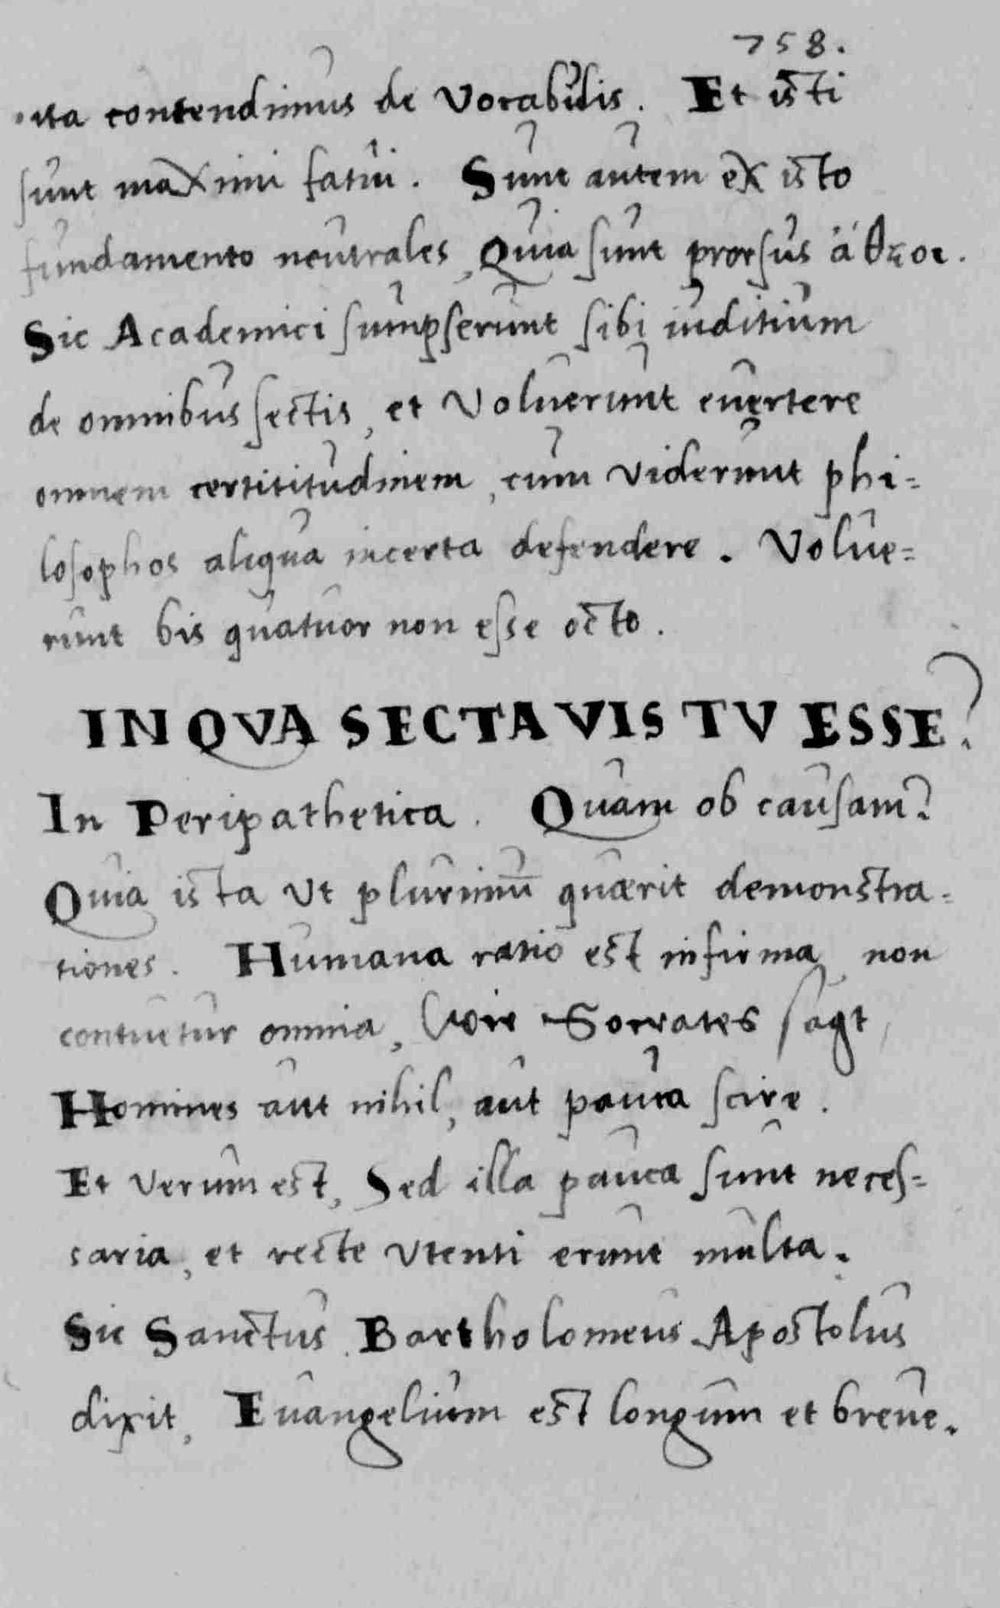 758.
ita contendimus de Vocabulis. Et isti
sunt maximi fatui. Sunt autem ex isto
fundamento neutrales, Quia sunt prorsus ἄθεοι.
Sic Academici sumpserunt sibi iuditium
de omnibus sectis, et Voluerunt euertere
omnem certititudinem, cum viderunt phi=
losophos aliqua incerta defendere. Volue=
runt bis quatuor non esse octo.
IN QVA SECTA VIS TV ESSE?
In Peripathetica. Quam ob causam?
Quia ista Ut plurimū quærit demonstra=
tiones. Humana ratio est infirma, non
contuetur omnia, Wie Socrates sagt,
Homines aut nihil, aut pauca scire.
Et verum est, Sed illa pauca sunt neces=
saria, et recte Utenti erunt multa.
Sic Sanctus Bartholomeus Apostolus
dixit, Euangelium est longum et breue.